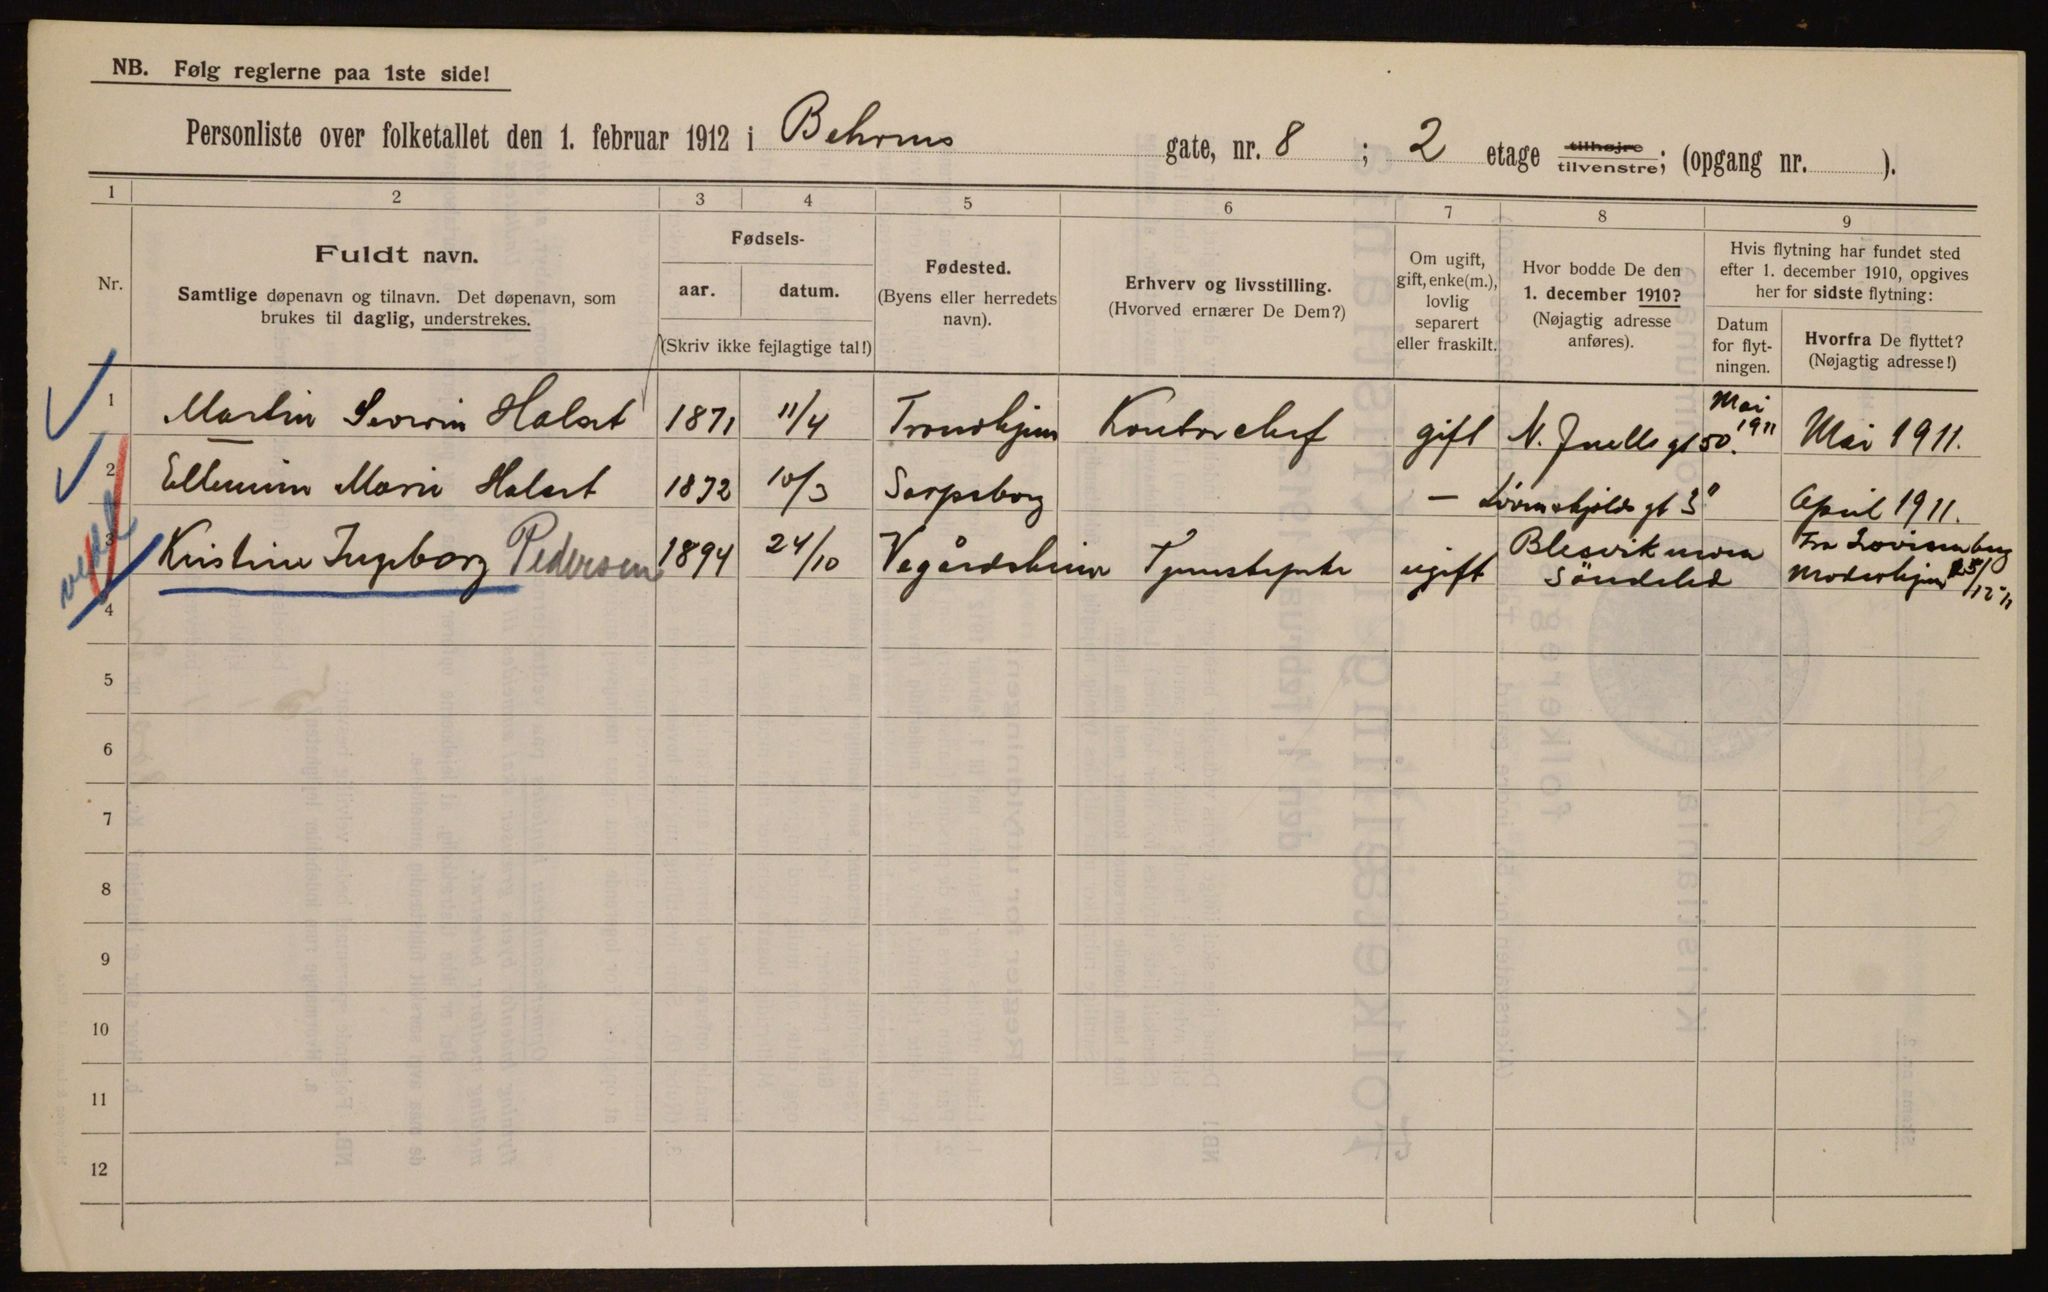 NB. Følg reglerne paa 1ste side!
Personliste over folketallet den 1. februar 1912 i Behrens gate, nr. 8 ; 2 etage tilhøjre tilvenstre; (opgang nr. ).
1 2 3 4 5 6 7 8 9
Nr.
Fuldt navn.
Samtlige døpenavn og tilnavn. Det døpenavn, som
brukes til daglig, understrekes.
Fødsels-
aar. datum.
(Skriv ikke fejlagtige tal!)
Fødested.
(Byens eller herredets
navn).
Erhverv og livsstilling.
(Hvorved ernærer De Dem?)
Om ugift,
gift, enke(m.),
lovlig
separert
eller fraskilt.
Hvor bodde De den
1. december 1910?
(Nøjagtig adresse
anføres).
Hvis flytning har fundet sted
efter 1. december 1910, opgives
her for sidste flytning:
Datum
for flyt-
ningen.
Hvorfra De flyttet?
(Nøjagtig adresse!)
1 Martin Severin Halset 1871 11/4 Trondhjem Kontorchef gift N. Juells gt 50. Mai 1911 Mai 1911.
2 Marie Halset 1872 10/3 Sarpsborg — Løvenskjolds gt 3 April 1911.
3 Kristine Ingeborg Pedersen 1894 24/10 Vegårdsheien Tjenestepike ugift Søndeled Fra Lovisenberg
4
5
6
7
8
9
10
11
12